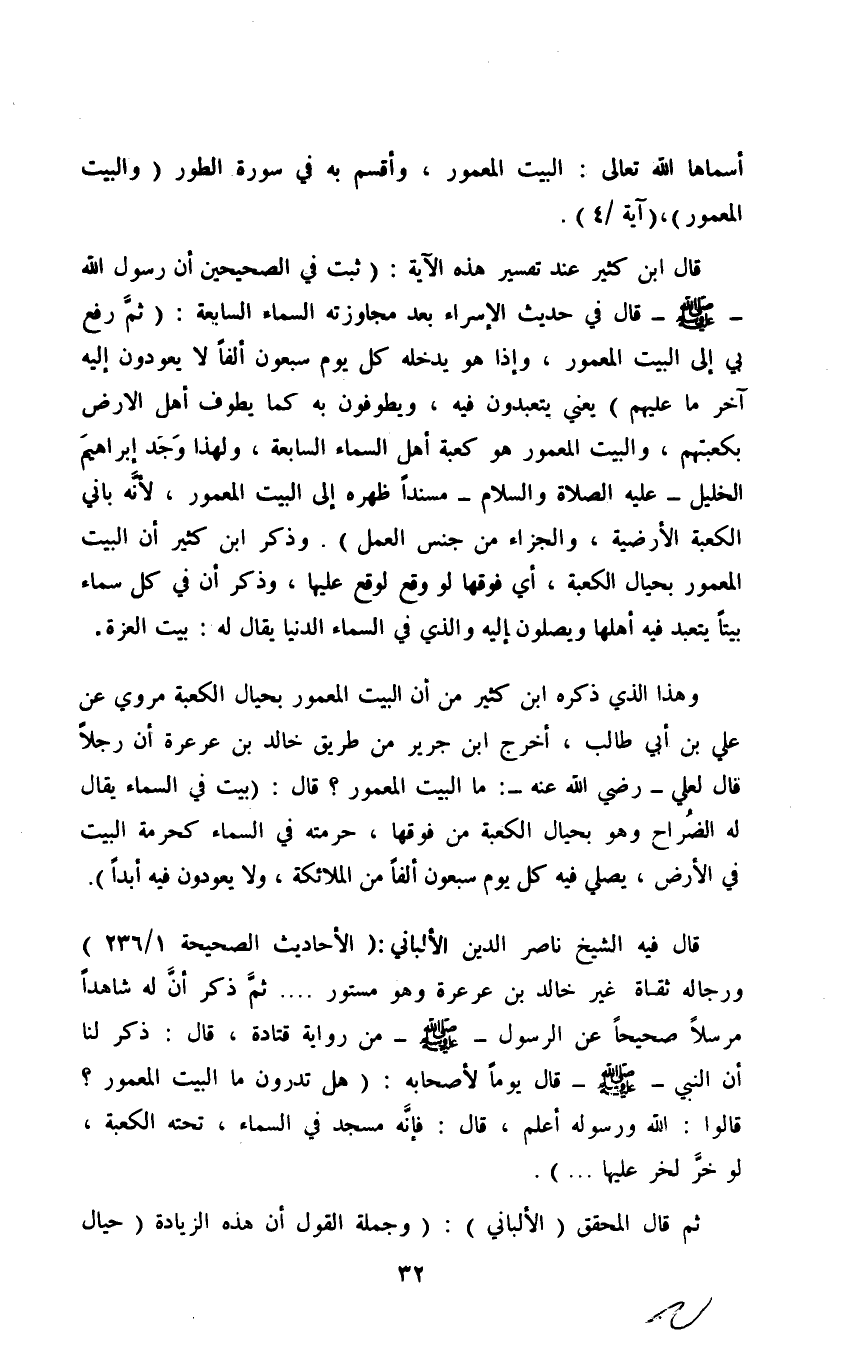 أسماها الله تعالى : البيت المعمور ، وأقسم به في سورة الطور ( والبيت
المعمور )،(آية /٤ ) .
قال ابن كثير عند تفسير هذه الآية : ( ثبت في الصحيحين أن رسول الله
ـ ﷺ ـ قال في حديث الإسراء بعد مجاوزته السماء السابعة : ( ثمَّ رفع
بي إلى البيت المعمور ، وإذا هو يدخله كل يوم سبعون ألفاً لا يعودون إليه
آخر ما عليهم ) يعني يتعبدون فيه ، ويطوفون به كما يطوف أهل الارض
بكعبتهم ، والبيت المعمور هو كعبة أهل السماء السابعة ، ولهذا وَجَد إبراهيمَ
الخليل ـ عليه الصلاة والسلام ـ مسنداً ظهره إلى البيت المعمور ، لأنَّه باني
الكعبة الأرضية ، والجزاء من جنس العمل ) . وذكر ابن كثير أن البيت
المعمور بحيال الكعبة ، أي فوقها لو وقع لوقع عليها ، وذكر أن في كل سماء
بيتاً يتعبد فيه أهلها ويصلون إليه والذي في السماء الدنيا يقال له : بيت العزة .
وهذا الذي ذكره ابن كثير من أن البيت المعمور بحيال الكعبة مروي عن
علي بن أبي طالب ، أخرج ابن جرير من طريق خالد بن عرعرة أن رجلاً
قال لعلي ـ رضي الله عنه ـ: ما البيت المعمور ؟ قال : (بيت في السماء يقال
له الضُراح وهو بحيال الكعبة من فوقها ، حرمته في السماء كحرمة البيت
في الأرض ، يصلي فيه كل يوم سبعون ألفاً من الملائكة ، ولا يعودون فيه أبداً ).
قال فيه الشيخ ناصر الدين الألباني :( الأحاديث الصحيحة ٢٣٦/١ )
ورجاله ثقاة غير خالد بن عرعرة وهو مستور .... ثمَّ ذكر أنَّ له شاهداً
مرسلاً صحيحاً عن الرسول ـ ﷺ ـ من رواية قتادة ، قال : ذكر لنا
أن النبي ـ ﷺ ـ قال يوماً لأصحابه : ( هل تدرون ما البيت المعمور ؟
قالوا : الله ورسوله أعلم ، قال : فإنَّه مسجد في السماء ، تحته الكعبة ،
لو خرَّ لخر عليها ... ) .
ثم قال المحقق ( الألباني ) : ( وجملة القول أن هذه الزيادة ( حيال
٣٢